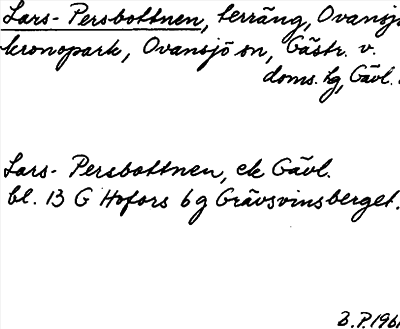 Lars-Persbottnen, terräng, Ovansjö
kronopark, Ovansjö sn, Gästr. v.
doms. hg, Gävl.
Lars-Persbottnen, ek Gävl.
bl. 13 G Hofors 6 g Grävsvinsberget.